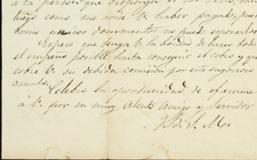 á la persona que
luego como me avise V. haber pagado, pues
como que esos documentos no puede
Espero que tenga V. la bondad de hacer todo
el empeño posible hasta conseguir el cobro y que
cobre V. su debida comisión por este engorroso
asunto.
Celebro la oportunidad de ofrecerme
á V. por su muy atento amigo y servidor